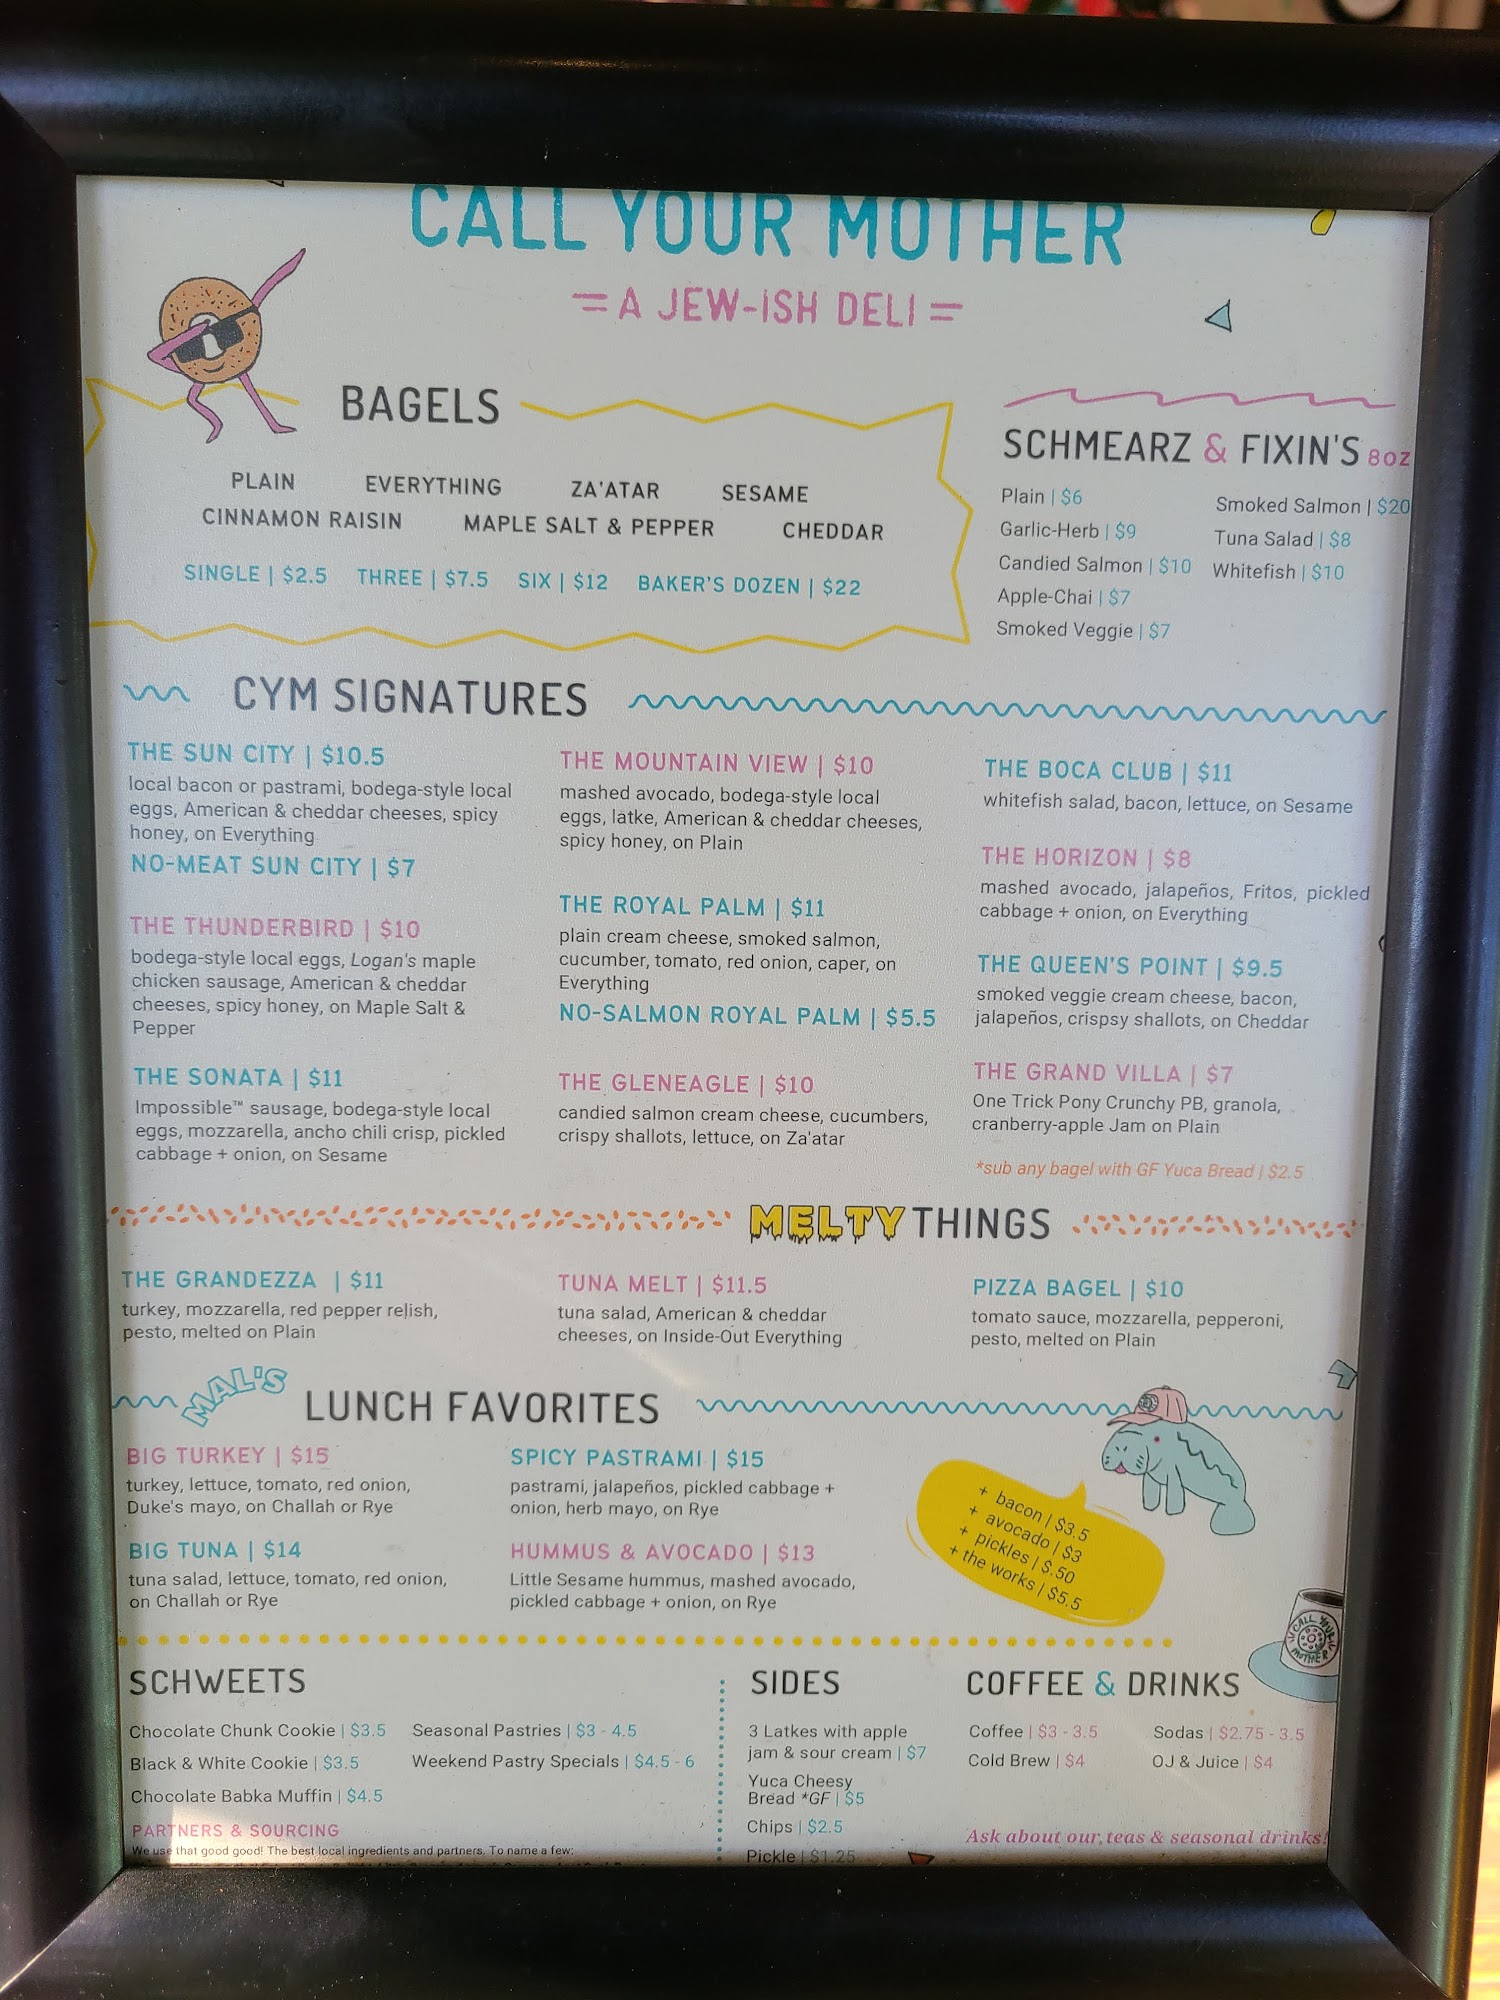 CALL YOUR MOTHER
= A JEW-ISH DELI =
BAGELS
PLAIN EVERYTHING ZA'ATAR SESAME
CINNAMON RAISIN MAPLE SALT & PEPPER CHEDDAR
SINGLE | $2.5 THREE | $7.5 SIX | $12 BAKER'S DOZEN | $22
SCHMEARZ & FIXIN'S 8oz
Plain | $6
Garlic-Herb | $9
Candied Salmon | $10
Apple-Chai | $7
Smoked Veggie | $7
Smoked Salmon | $20
Tuna Salad | $8
Whitefish | $10
CYM SIGNATURES
THE SUN CITY | $10.5
local bacon or pastrami, bodega-style local
eggs, American & cheddar cheeses, spicy
honey, on Everything
NO-MEAT SUN CITY | $7
THE THUNDERBIRD | $10
bodega-style local eggs, Logan's maple
chicken sausage, American & cheddar
cheeses, spicy honey, on Maple Salt &
Pepper
THE SONATA | $11
Impossible™ sausage, bodega-style local
eggs, mozzarella, ancho chili crisp, pickled
cabbage + onion, on Sesame
THE MOUNTAIN VIEW | $10
mashed avocado, bodega-style local
eggs, latke, American & cheddar cheeses,
spicy honey, on Plain
THE ROYAL PALM | $11
plain cream cheese, smoked salmon,
cucumber, tomato, red onion, caper, on
Everything
NO-SALMON ROYAL PALM | $5.5
THE GLENEAGLE | $10
candied salmon cream cheese, cucumbers,
crispy shallots, lettuce, on Za'atar
THE BOCA CLUB | $11
whitefish salad, bacon, lettuce, on Sesame
THE HORIZON | $8
mashed avocado, jalapeños, Fritos, pickled
cabbage + onion, on Everything
THE QUEEN'S POINT | $9.5
smoked veggie cream cheese, bacon,
jalapeños, crispsy shallots, on Cheddar
THE GRAND VILLA | $7
One Trick Pony Crunchy PB, granola,
cranberry-apple Jam on Plain
*sub any bagel with GF Yuca Bread | $2.5
MELTY THINGS
THE GRANDEZZA | $11
turkey, mozzarella, red pepper relish,
pesto, melted on Plain
TUNA MELT | $11.5
tuna salad, American & cheddar
cheeses, on Inside-Out Everything
PIZZA BAGEL | $10
tomato sauce, mozzarella, pepperoni,
pesto, melted on Plain
MAL'S LUNCH FAVORITES
BIG TURKEY | $15
turkey, lettuce, tomato, red onion,
Duke's mayo, on Challah or Rye
BIG TUNA | $14
tuna salad, lettuce, tomato, red onion,
on Challah or Rye
SPICY PASTRAMI | $15
pastrami, jalapeños, pickled cabbage +
onion, herb mayo, on Rye
HUMMUS & AVOCADO | $13
Little Sesame hummus, mashed avocado,
pickled cabbage + onion, on Rye
+ bacon | $3.5
+ avocado | $3
+ pickles | $.50
+ the works | $5.5
CALL YOUR
MOTHER
SCHWEETS
Chocolate Chunk Cookie | $3.5
Black & White Cookie | $3.5
Chocolate Babka Muffin | $4.5
Seasonal Pastries | $3 - 4.5
Weekend Pastry Specials | $4.5 - 6
PARTNERS & SOURCING
We use that good good! The best local ingredients and partners. To name a few:
SIDES
3 Latkes with apple
jam & sour cream | $7
Yuca Cheesy
Bread *GF | $5
Chips | $2.5
Pickle | $1.25
COFFEE & DRINKS
Coffee | $3 - 3.5
Cold Brew | $4
Sodas | $2.75 - 3.5
OJ & Juice | $4
Ask about our teas & seasonal drinks!